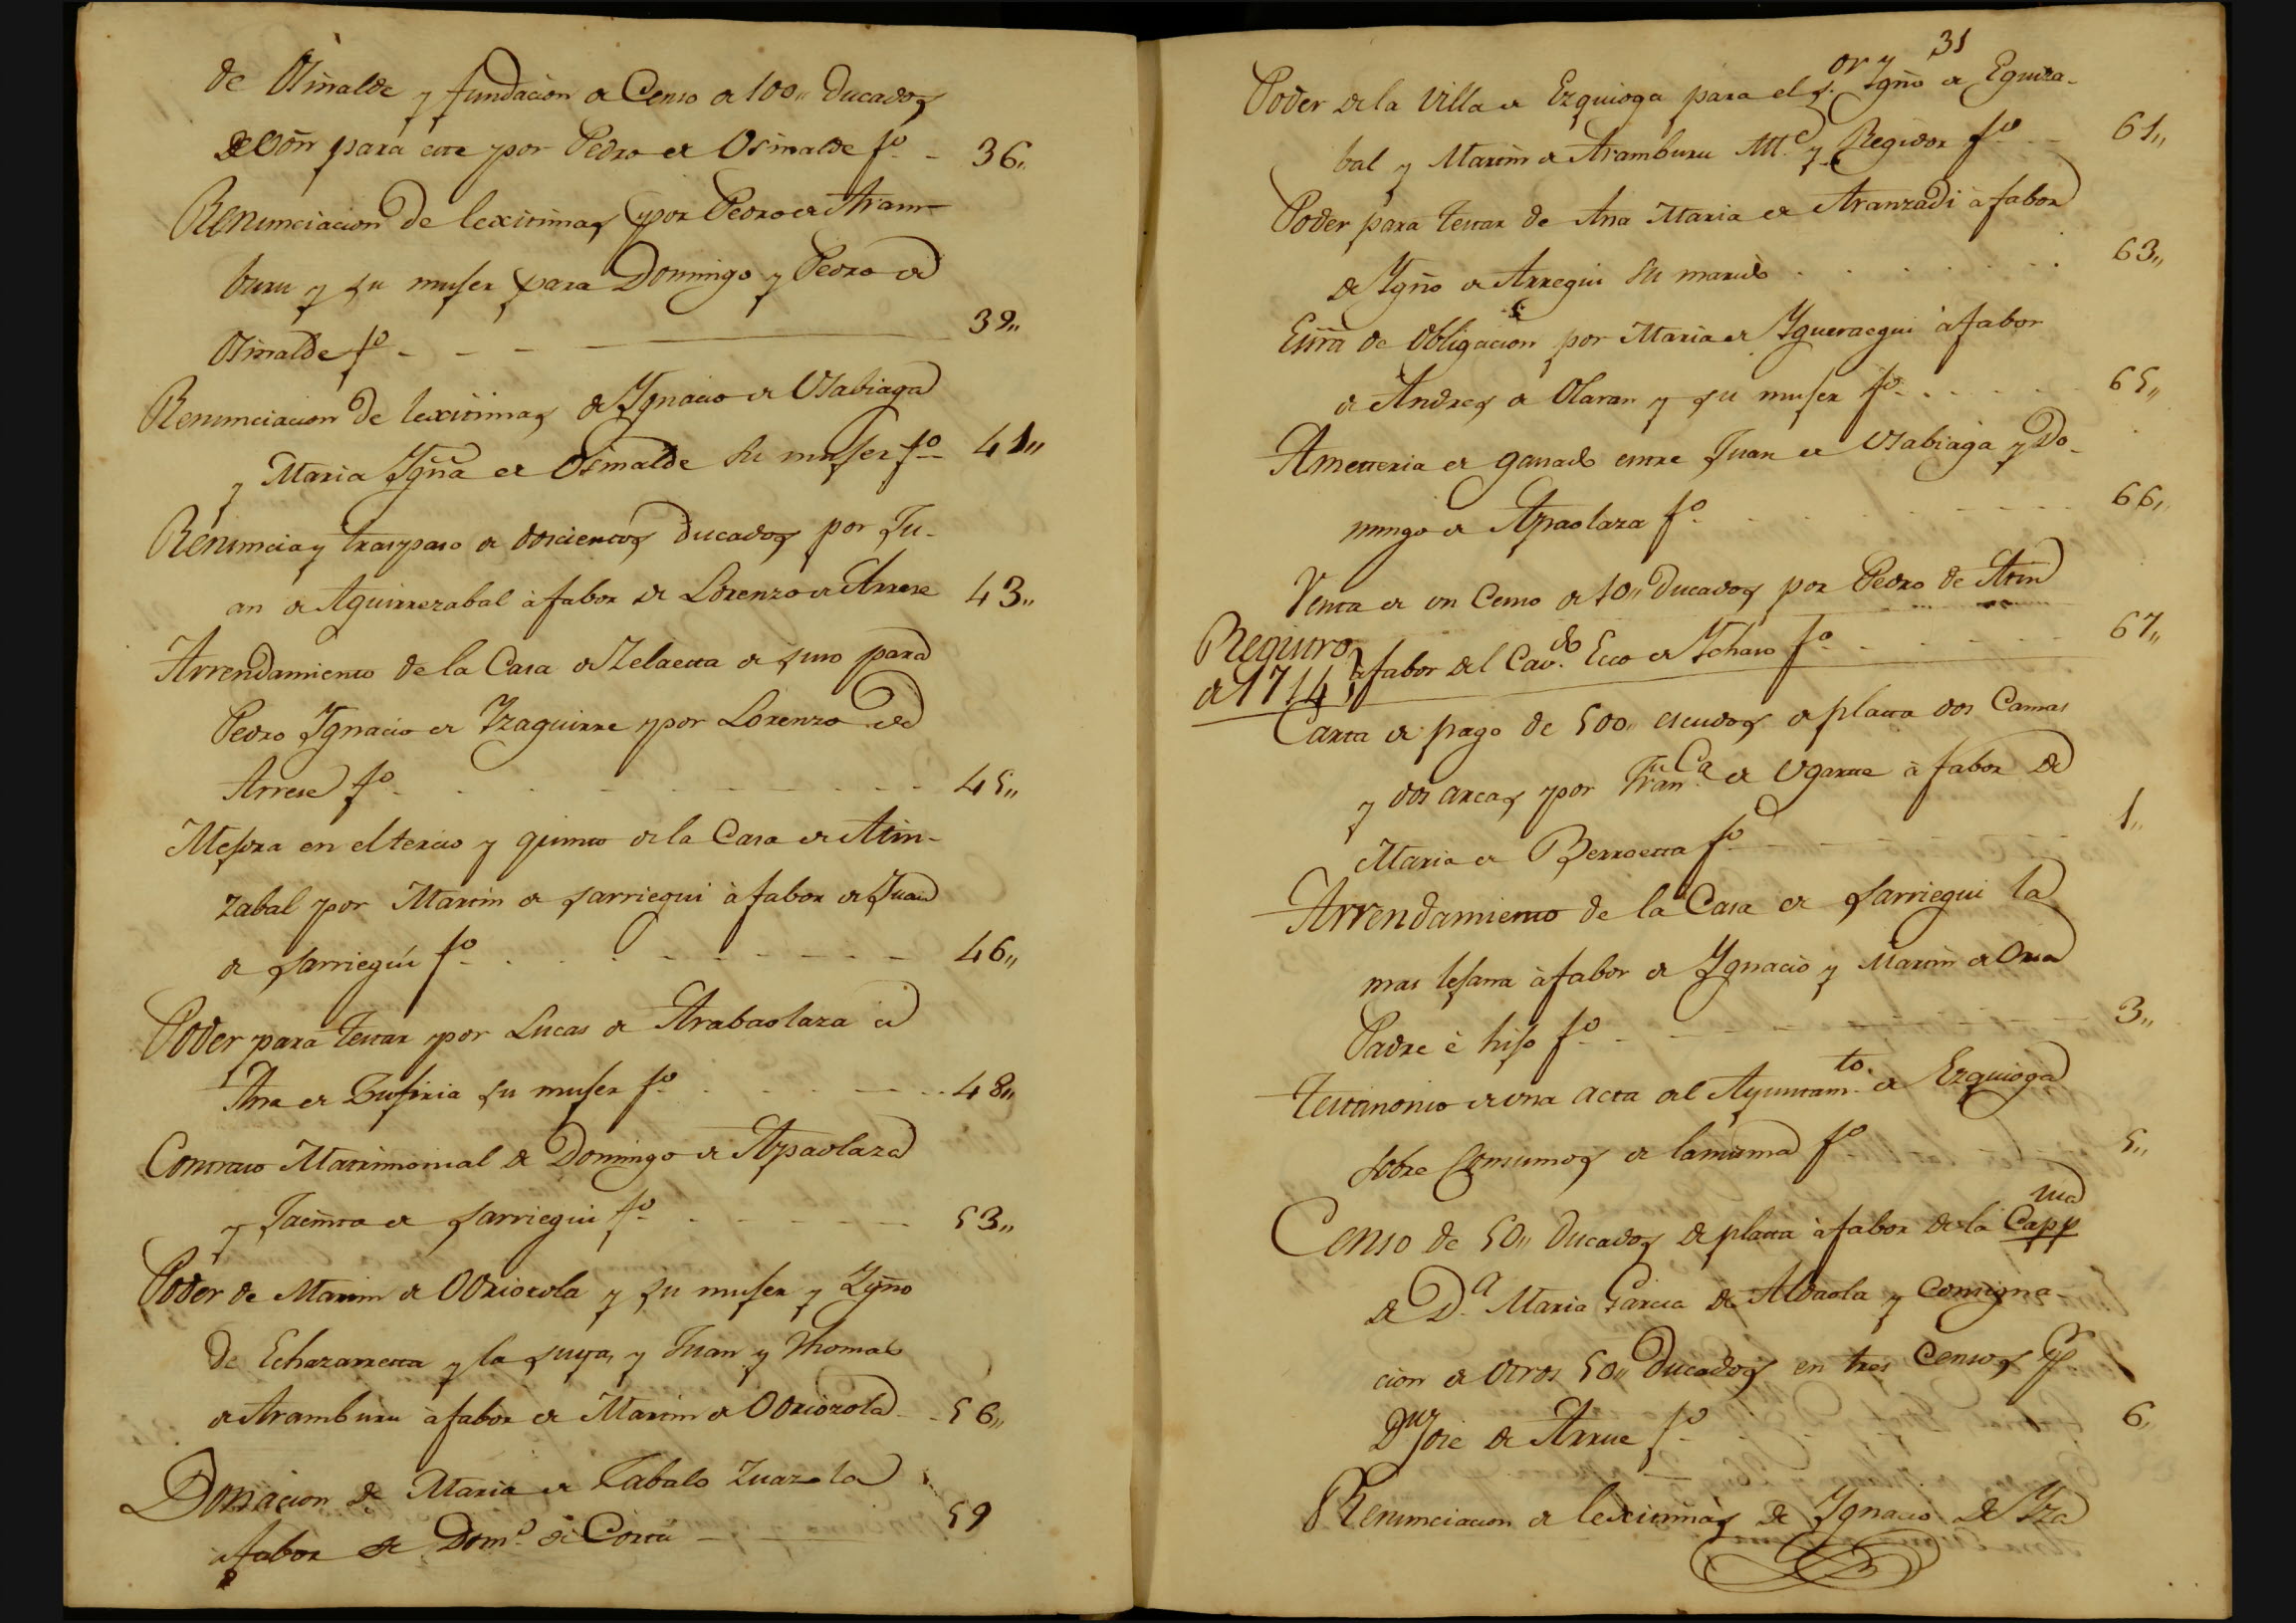 de Osinalde y fundacion de Censo de 100,, Ducados
para este por Pedro de Osinalde fº - 36,,
Renunciacion de lexitimas por Pedro de Aram-
buru y su muger para Domingo y Pedro de
Osinalde fº - - - 39,,
Renunciacion de lexitimas de Ygnacio de Usabiaga
y Maria Ygña de Osinalde su muger fº 41,,
Renuncia y traspaso de doscientos ducados por Ju-
an de Aguirrezabal à fabor de Lorenzo de Arrese 43,,
Arrendamiento de la Casa de Zelaeta de suso para
Pedro Ygnacio de Yzaguirre por Lorenzo de
Arrese fº - - - 45,,
Mejora en el tercio y quinto de la Casa de Atin-
zabal por Martin de Sarriegui à fabor de Juan
de Sarriegui fº - - - 46,,
Poder para testar por Lucas de Arabaolaza a
Ana de su muger fº - - - 48,,
Contrato Matrimonial de Domingo de Apaolaza
y Jacinta de Sarriegui fº - - - 53,,
Poder de Martin de Odriozola y su muger y Ygño
de Echazarreta y la suya, y Juan y Thomas
de Aramburu à fabor de Martin de Odriozola - 56,,
Donacion de Maria de Zabalo Zuazola
afabor de Domº de Corta - 59
31
Poder de la Villa de Ezquioga para el Sor. Ygño de Eguiza-
bal y Martin de Aramburu Me. y Regidor fº - 61,,
Poder para testar de Ana Maria de Aranzadi à fabor
de Ygño de Arregui su marido . . . 63,,
Essra de obligacion por Maria de Ygueraegui à fabor
de Andres de Olaran y su muger fº . . . 65,,
Ametteria de ganado entre Juan de Usabiaga y Do-
mingo de Apaolaza fº - - - 66,,
Venta de un Censo de 10,, Ducados por Pedro de Atin
à fabor del Cavdo. Ecco de Ychaso fº - - - 67,,
Registro
de 1714,,
Carta de pago de 500,, escudos de platta dos Camas
y dos arcas por Franca. de Ugarte à fabor de
Maria de Berroetta fº - - - 1,,
Arrendamiento de la Casa de Sarriegui la
mas lejana à fabor de Ygnacio y Martin de Oria
Padre è hijo fº - - - 3,,
Testimonio de una acta del Ayuntamto. de Ezquioga
sobre Consumos de la misma fº 5,,
Censo de 50,, Ducados de platta à fabor de la Cappnia
de Da. Maria Garcia de Aldaola y Consigna-
cion de otros 50,, Ducados en tres Censos pr
Dn Jose de Arrue fº 6,,
Renunciacion de lexitimas de Ygnacio de Yza